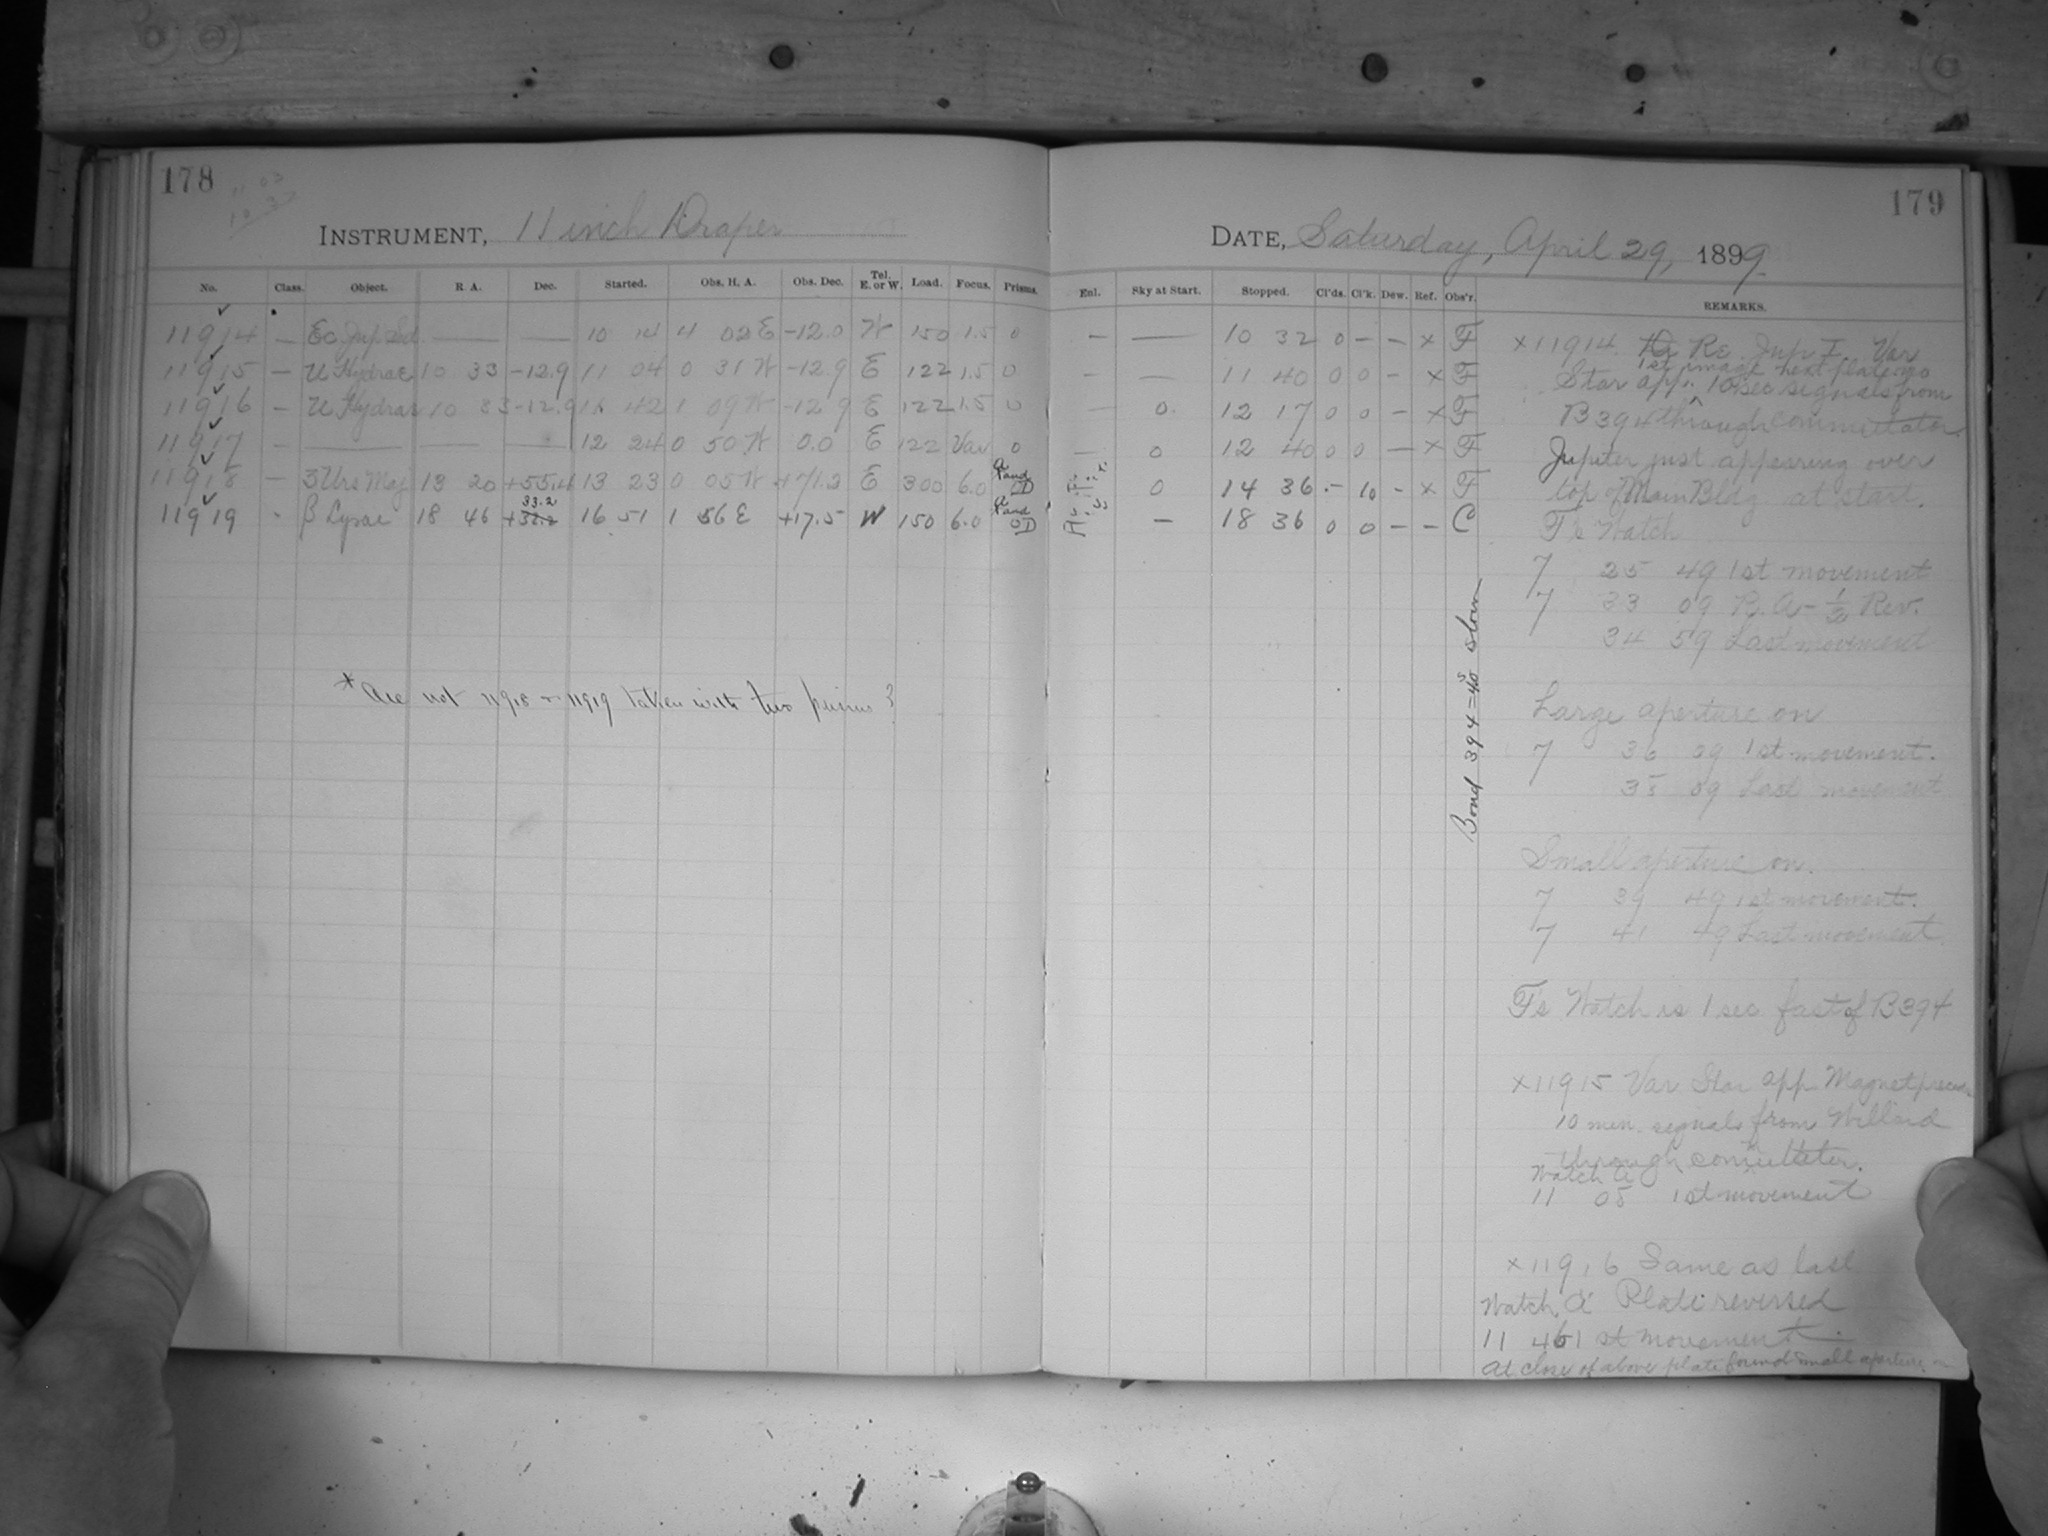 178
INSTRUMENT, 11 inch Draper
No. Class. Object. R. A. Dec. Started. Obs. H. A. Obs. Dec. Tel. E. or W. Load. Focus. Prisms.
11914 — Ec. Jup. Sat. — — 10 14 4 02 E -12.0 W 150 1.5 0
11915 — U Hydrae 10 33 -12.9 11 04 0 31 W -12.9 E 122 1.5 0
11916 — U Hydrae 10 33 -12.9 11 42 1 09 W -12.9 E 122 1.5 0
11917 — — — — 12 24 0 50 W 0.0 E 122 Var 0
11918 — 3 Urs Maj 13 20 +55.4 13 23 0 05 W E 300 6.0 and
11919 - β Lyrae 18 46 33.2 16 51 1 56 E +17.5 W 150 6.0 and
* Are not 11918 + 11919 taken with two prisms?
179
DATE, Saturday, April 29, 1899
Enl. Sky at Start. Stopped. Cl'ds. Cl'k. Dew. Ref. Obs'r. REMARKS.
— — 10 32 0 - - x F
- — 11 40 0 0 - x F
— 0 12 17 0 0 - x F
0 12 40 0 0 — x F
0 14 36 - 10 - x F
— 18 36 0 0 — — C
Bond 394 = 40s slow
x 11914 Re. Jup I. Var
1st image next plate no
Star app. 10 sec signals from
B 394 through commutator
Jupiter just appearing over
top of Main Bldg. at start.
F's Watch
7 25 49 1st movement
7 33 09 R. A - 1/2 Rev.
34 59 Last movement
Large aperture on
7 36 09 1st movement.
38 09 Last movement
Small aperture on.
7 39 49 1st movement.
7 41 49 Last movement.
F's Watch is 1 sec. fast of B 394
x 11915 Var Star app Magnet
10 min. signals from Willard
through
Watch A
11 05 1st movement
x 11916 Same as last
Watch A Plate reversed
11 46 1st movement.
At close of above plate found small aperture on